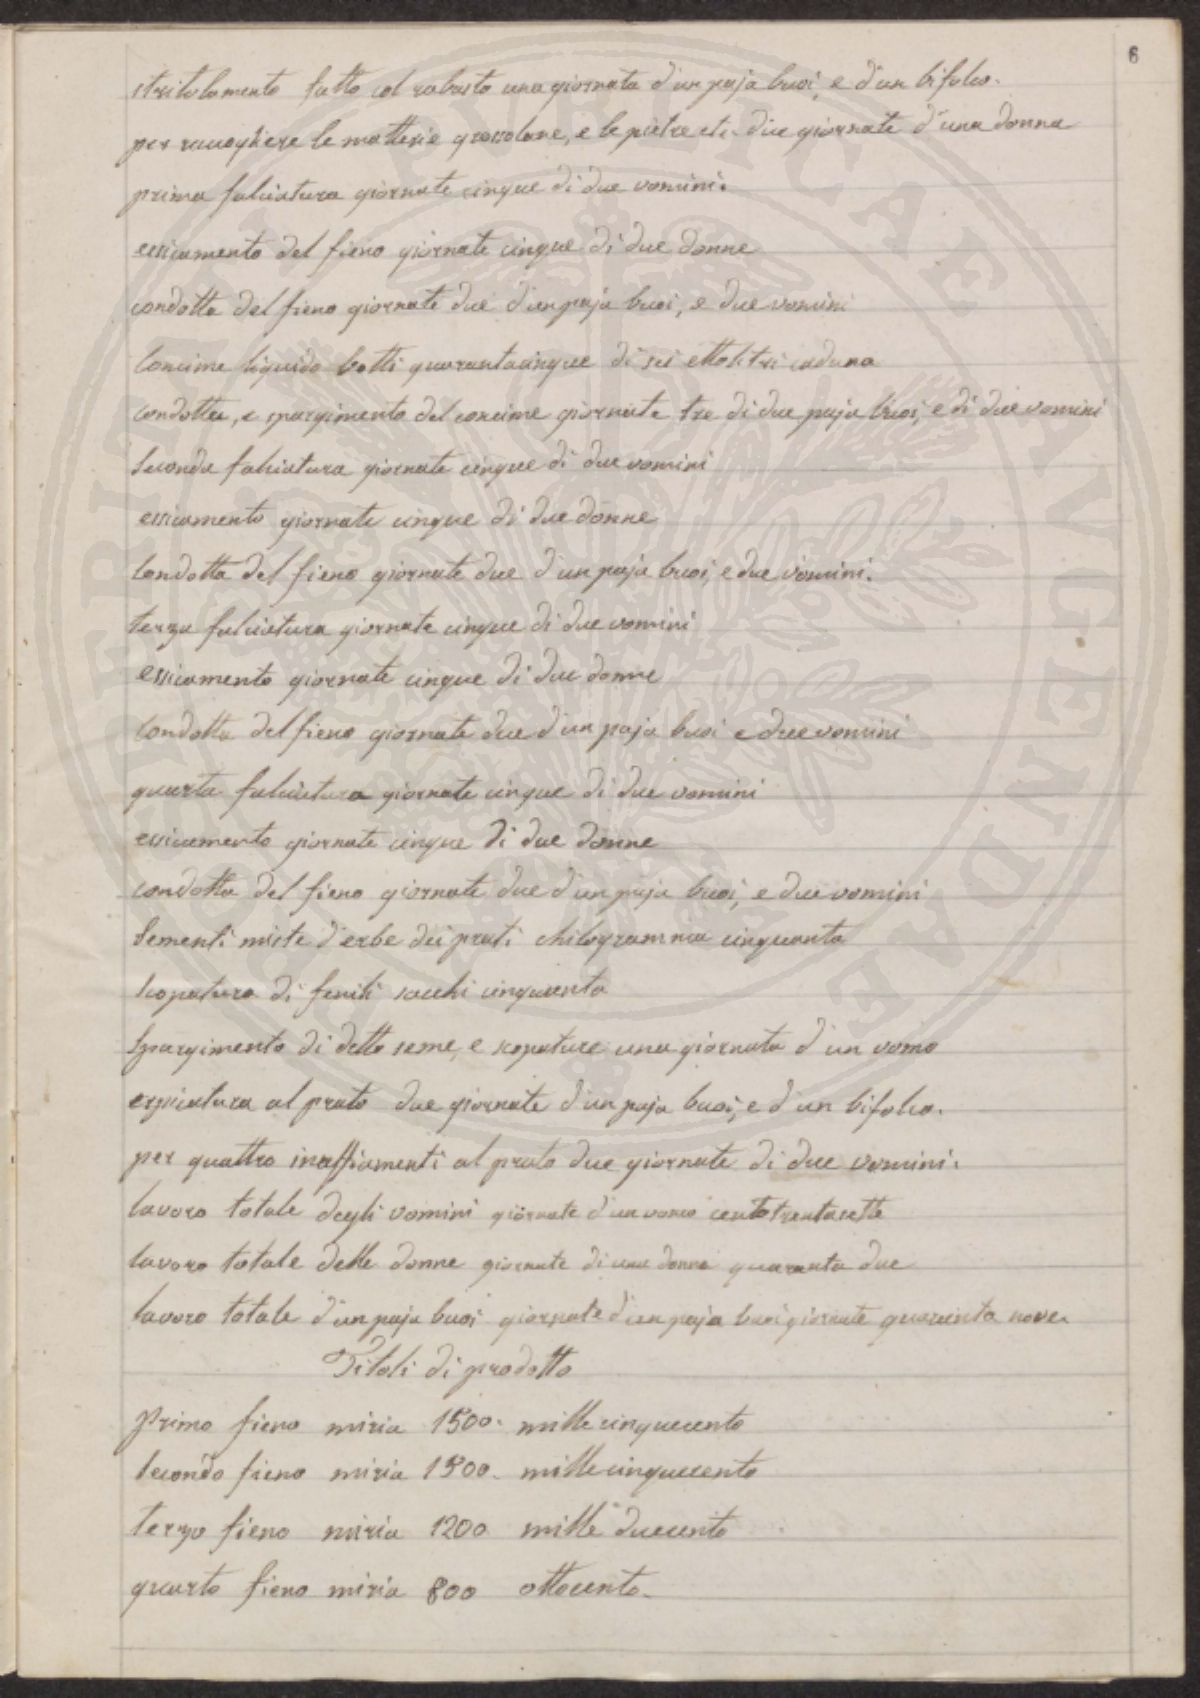 6
stritolamento fatto col rabasto una giornata d'un paja buoi, e d'un bifolco.
per raccogliere le matterie grossolane, e le pietre etc. due giornate d'una donna
prima falciatura giornate cinque di due uomini.
essicamento del fieno giornate cinque di due donne
condotta del fieno giornate due d'un paja buoi, e due uomini
Concime liquido botti quarantacinque di sei ettolitri caduna
condotta, e spargimento del concime giornate tre di due paja buoi, e di due uomini
Seconda falciatura giornate cinque di due uomini
essicamento giornate cinque di due donne
Condotta del fieno giornate due d'un paja buoi, e due uomini.
terza falciatura giornate cinque di due uomini
essicamento giornate cinque di due donne
Condotta del fieno giornate due d'un paja buoi e due uomini
quarta falciatura giornate cinque di due uomini
essicamento giornate cinque di due donne
condotta del fieno giornate due d'un paja buoi, e due uomini
Sementi miste d'erbe dei prati chilogramma cinquanta
Scopatura di fenili sacchi cinquanta
Spargimento di detto seme, e scopature una giornata d'un uomo
erpicatura al prato due giornate d'un paja buoi, e d'un bifolco.
per quattro inaffiamenti al prato due giornate di due uomini.
lavoro totale degli uomini giornate d'un uomo centotrentasette
lavoro totale delle donne giornate di una donna quaranta due
lavoro totale d'un paja buoi giornate d'un paja buoi giornate quaranta nove.
Titoli di prodotto
Primo fieno miria 1500. mille cinquecento
Secondo fieno miria 1500. mille cinquecento
terzo fieno miria 1200 mille duecento
quarto fieno miria 800 ottocento.